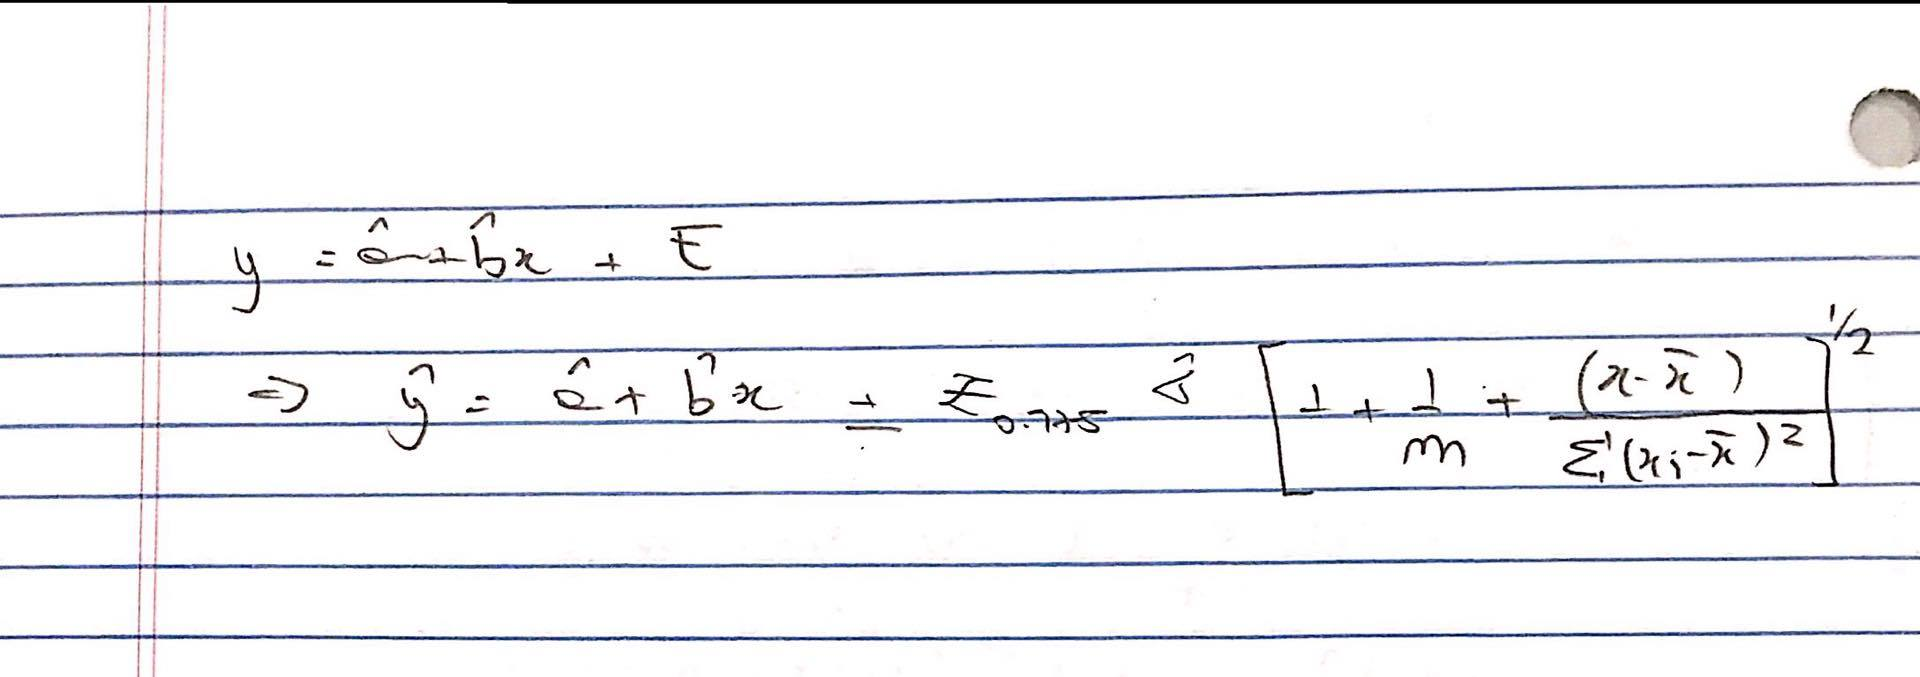 y = â + b̂x + E
⇒ ŷ = â + b̂x ± z_{0.775} σ̂ [1 + 1/m + (x - x̄)/Σ(x_i - x̄)^2]^{1/2}